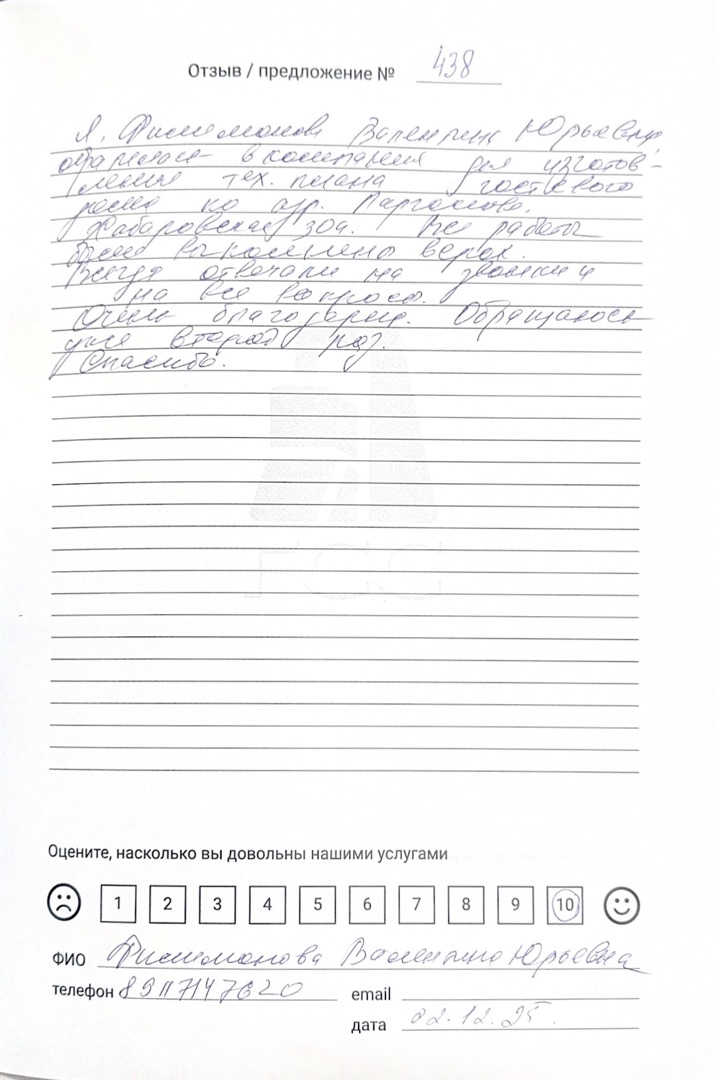 Отзыв / предложение № 438
Я, Филимонова Валентина Юрьевна,
обратилась в компанию для изготов-
ления тех. плана гостевого
дома по адр. Парголово,
Хабаровская 30а. Все работы
были выполнены верно.
Всегда отвечали на звонки и
на все вопросы.
Очень благодарна. Обращаюсь
уже второй раз.
Спасибо.
ГСС
Оцените, насколько вы довольны нашими услугами
1 2 3 4 5 6 7 8 9 10
ФИО Филимонова Валентина Юрьевна
телефон 89117147620 email
дата 22.12.25.